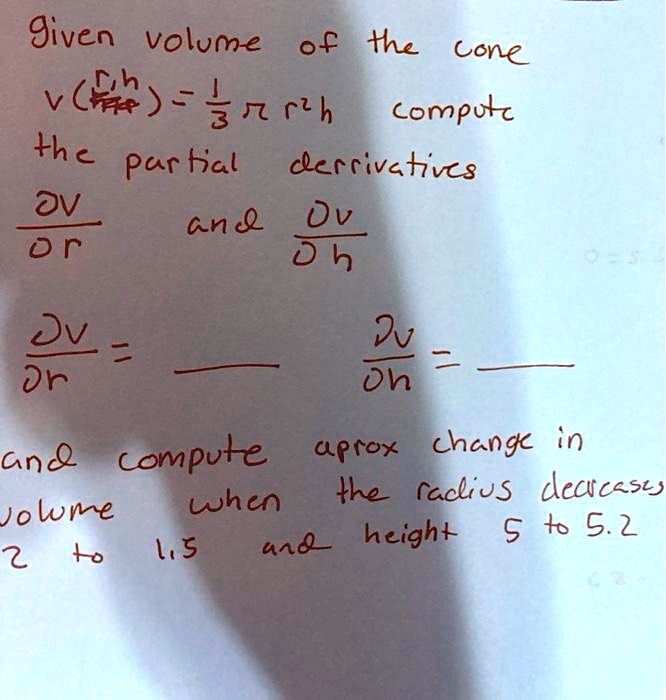 given volume of the cone
v(r,h) = 1/3 π r²h compute
the partial derrivatives
∂v/∂r and ∂v/∂h
∂v/∂r = ____ ∂v/∂h = ____
and compute aprox change in
volume when the radius decreases
2 to 1.5 and height 5 to 5.2